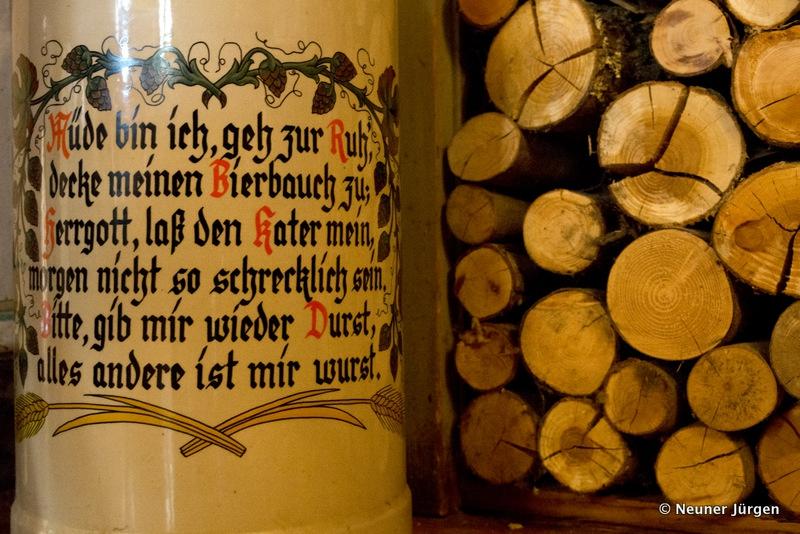 Müde bin ich, geh zur Ruh,
decke meinen Bierbauch zu;
Herrgott, laß den Kater mein,
morgen nicht so schrecklich sein.
Bitte, gib mir wieder Durst,
alles andere ist mir wurst.
© Neuner Jürgen